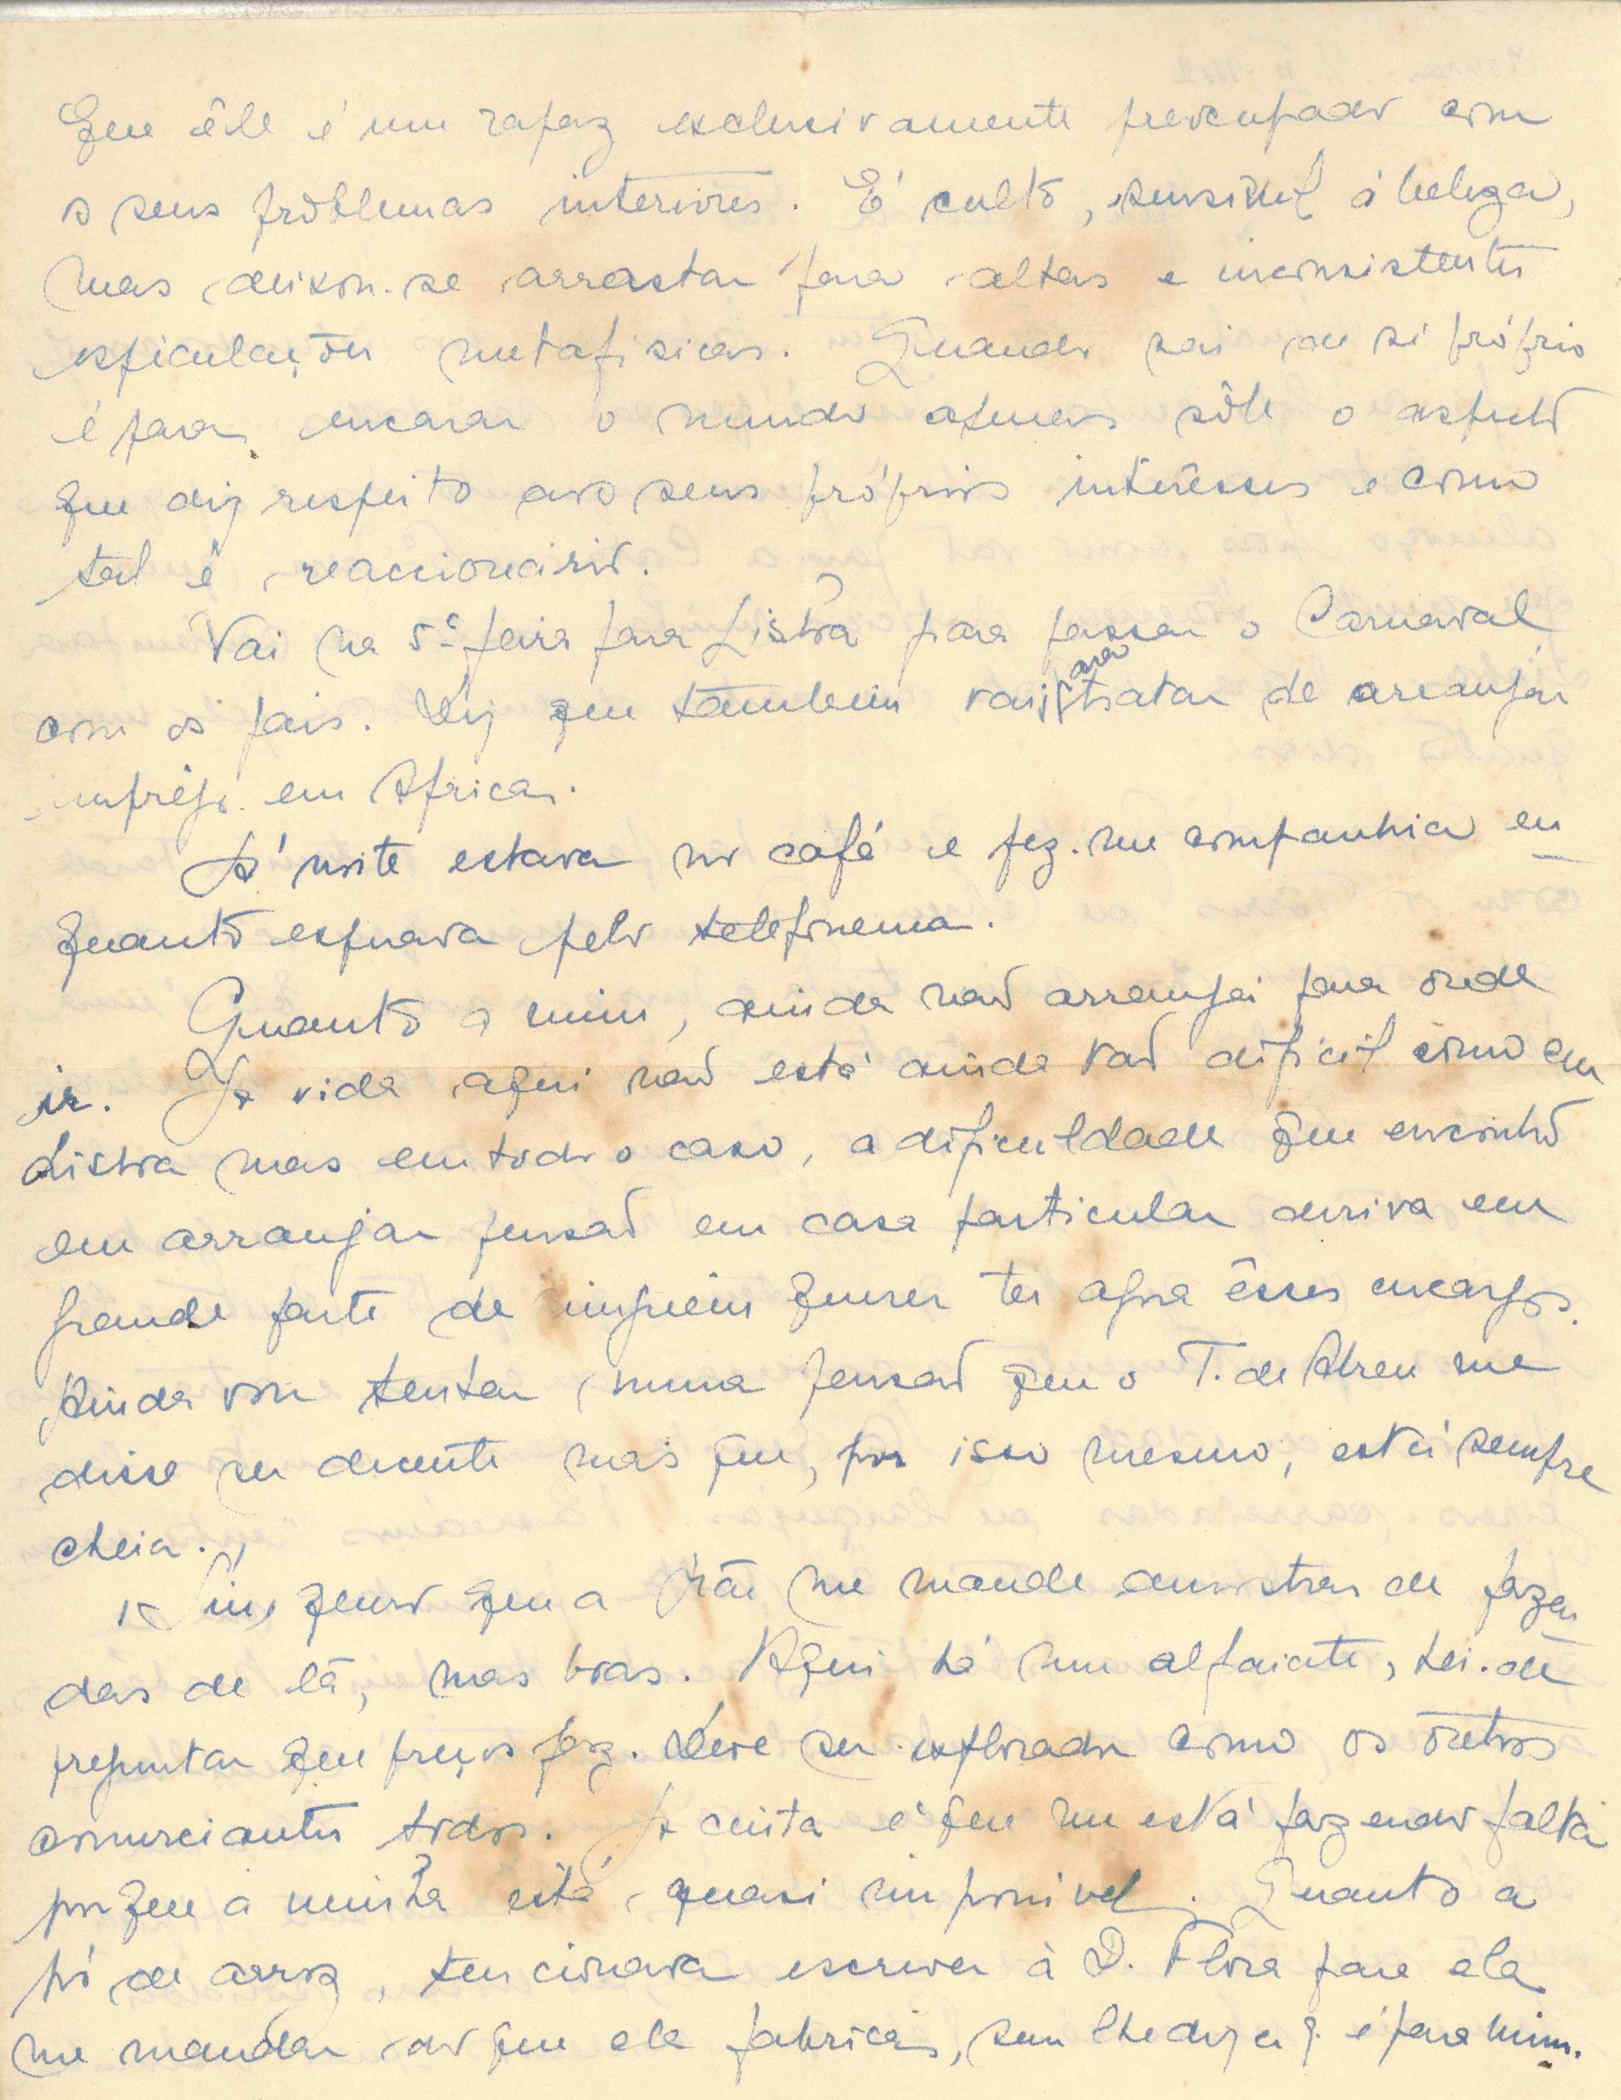 que êle é um rapaz exclusivamente preocupado com
os seus problemas interiores. É culto, sensível á beleza,
mas deixou-se arrastar para altas e inconsistentes
especulações metafisicas. Quando sai de si próprio
é para encarar o mundo apenas sôbe o aspecto
que diz respeito aos seus próprios interêsses e como
tal é reaccionário.
Vai na 5ª feira para Lisboa para passar o Carnaval
com os pais. Diz que tambem vai para tratar de arranjar
emprêgo em Africa.
Á noite estava no café e fez-me companhia en
quanto esperava pelo telefonema.
Quanto a mim, ainda não arranjei para onde
ir. A vida aqui não está ainda tão dificil como em
Lisboa mas em todo o caso, a dificuldade que encontro
em arranjar pensão em casa particular deriva em
grande parte de ninguêm querer ter agora êsses encargos.
Ainda vou tentar numa pensão que o T. de Abreu me
disse ser decente mas que, por isso mesmo, está sempre
cheia.
Sim, quero que a Mãe me mande amostras de fazen
das de lã, mas boas. Aqui há um alfaiate, hei-de
preguntar que preços faz. Deve ser explorador como os outros
comerciantes todos. A cinta é que me está fazendo falta
porque a minha está quasi imponivel. Quanto a
pó de arroz, tencionava escrever à D. Flora para ela
me mandar do que ela fabrica, sem lhe dizer q. é para mim.